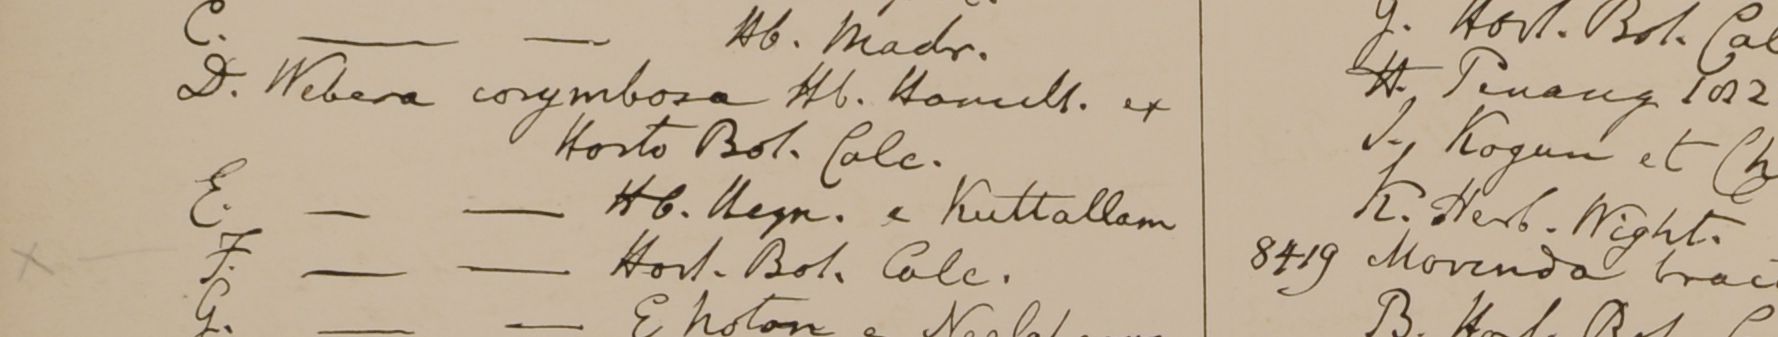 C. — — Hb. Madr.
D. Webera corymbosa Hb. Hamilt. ex
Horto Bot. Calc.
E. — — Hb. Heyn. e Kuttallam
F. — — Hort. Bot. Calc.
G. — — E
G. Hort. Bot. Cal
H. Penang 1822
I. Kogun et Ch
K. Herb. Wight.
8419 Morinda brac
B. Hort. Bot. C